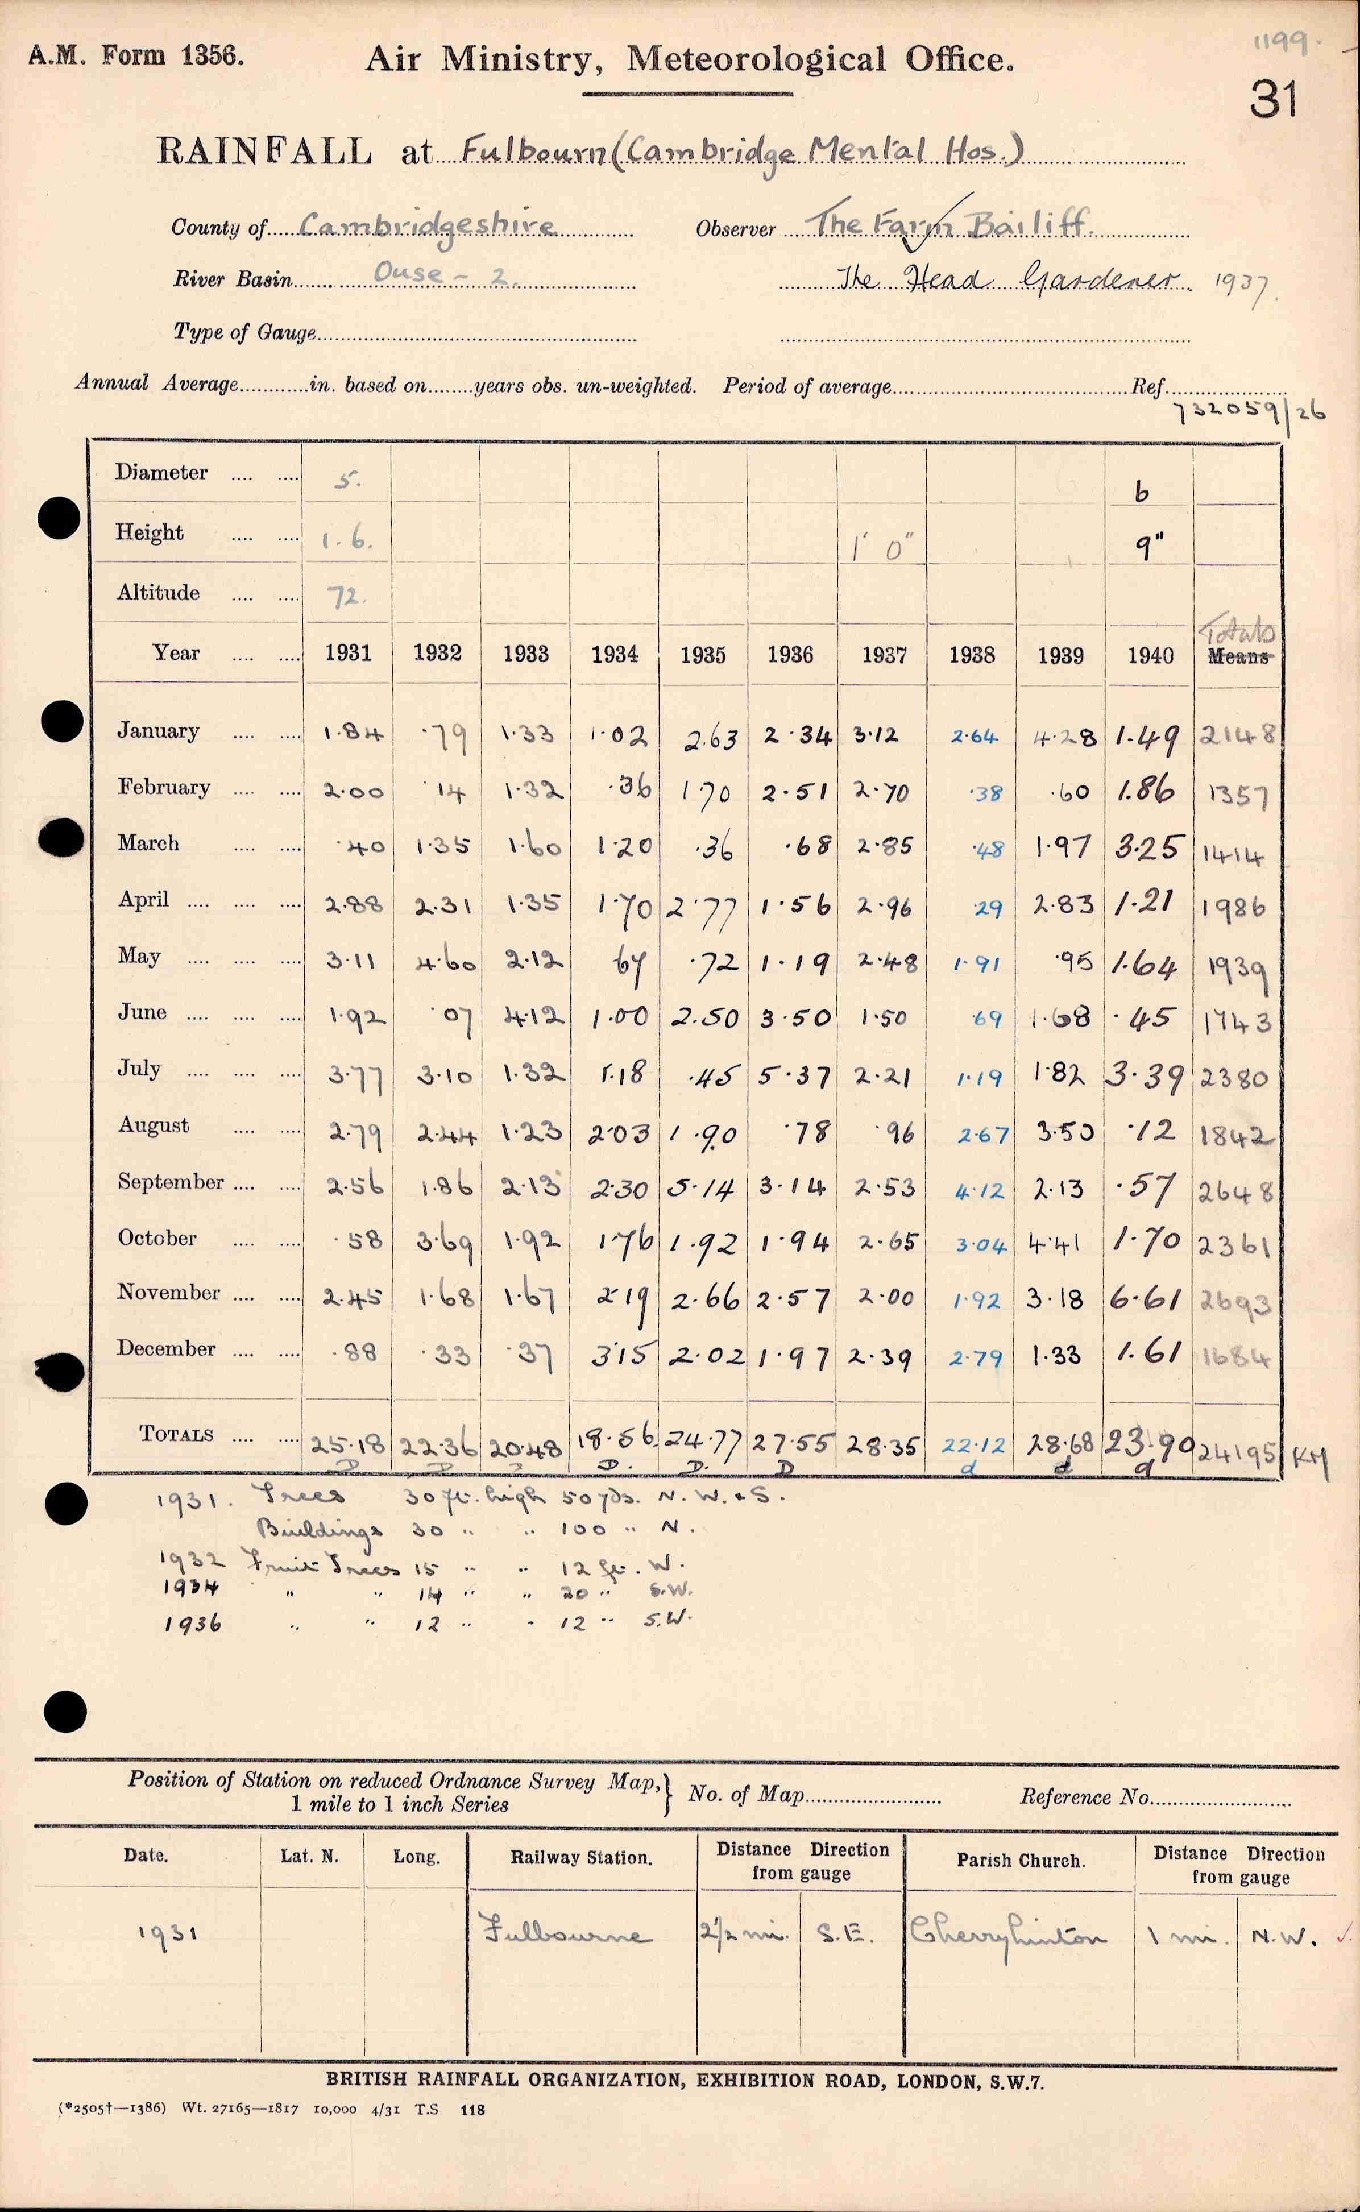 1199.
A.M. Form 1356. Air Ministry, Meteorological Office.
31
RAINFALL at Fulbourn (Cambridge Mental Hos.)
County of Cambridgeshire Observer The Farm Bailiff.
River Basin Ouse - 2. The Head Gardener. 1937.
Type of Gauge
Annual Average in. based on years obs. un-weighted. Period of average Ref.
732059/26
Diameter 5. 6
Height 1.6. 1' 0" 9"
Altitude 72.
Totals
Year 1931 1932 1933 1934 1935 1936 1937 1938 1939 1940 Means
January 1.84 .79 1.33 1.02 2.63 2.34 3.12 2.64 4.28 1.49 2148
February 2.00 .14 1.32 .36 1.70 2.51 2.70 .38 .60 1.86 1357
March .40 1.35 1.60 1.20 .36 .68 2.85 .48 1.97 3.25 1414
April 2.88 2.31 1.35 1.70 2.77 1.56 2.96 .29 2.83 1.21 1986
May 3.11 4.60 2.12 .67 .72 1.19 2.48 1.91 .95 1.64 1939
June 1.92 .07 4.12 1.00 2.50 3.50 1.50 .69 1.68 .45 1743
July 3.77 3.10 1.32 1.18 .45 5.37 2.21 1.19 1.82 3.39 2380
August 2.79 2.44 1.23 2.03 1.90 .78 .96 2.67 3.50 .12 1842
September 2.56 1.86 2.13 2.30 5.14 3.14 2.53 4.12 2.13 .57 2648
October .58 3.69 1.92 1.76 1.92 1.94 2.65 3.04 4.41 1.70 2361
November 2.45 1.68 1.67 2.19 2.66 2.57 2.00 1.92 3.18 6.61 2693
December .88 .33 .37 3.15 2.02 1.97 2.39 2.79 1.33 1.61 1684
TOTALS 25.18 22.36 20.48 18.56 24.77 27.55 28.35 22.12 28.68 23.90 24195 KM
D D D D. D. D d d d
1931. Trees 30 ft. high 50 yds. N. W. & S.
Buildings 30 " " 100 " N.
1932 Fruit Trees 15 " " 12 ft. W.
1934 " " 14 " " 20 " S.W.
1936 " " 12 " " 12 " S.W.
Position of Station on reduced Ordnance Survey Map, } No. of Map Reference No.
1 mile to 1 inch Series
Date. Lat. N. Long. Railway Station. Distance Direction from gauge Parish Church. Distance Direction from gauge
1931 Fulbourne 2½ mi. S.E. Cherryhinton 1 mi. N.W.
BRITISH RAINFALL ORGANIZATION, EXHIBITION ROAD, LONDON, S.W.7.
(*2505†—1386) Wt. 27165—1817 10,000 4/31 T.S 118